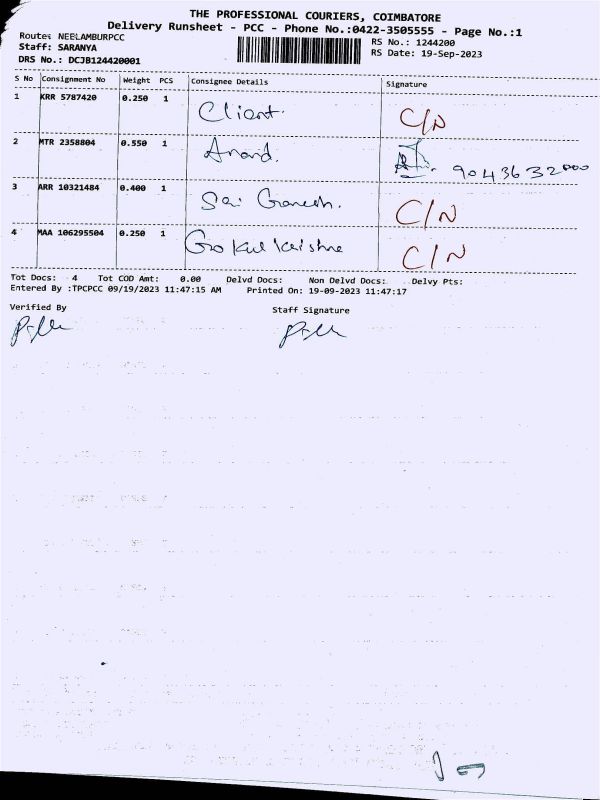 THE PROFESSIONAL COURIERS, COIMBATORE
Delivery Runsheet - PCC - Phone No.:0422-3505555 - Page No.:1
Route: NEELAMBURPCC
RS No.: 1244200
Staff: SARANYA
RS Date: 19-Sep-2023
DRS No.: DCJB124420001
S No Consignment No Weight PCS Consignee Details Signature
1 KRR 5787420 0.250 1 Client. C/N
2 MTR 2358804 0.550 1 Anand. 9043632000
3 ARR 10321484 0.400 1 Sai Ganesh. C/N
4 MAA 106295504 0.250 1 Gokul Krishna C/N
Tot Docs: 4 Tot COD Amt: 0.00 Delvd Docs: Non Delvd Docs: Delvy Pts:
Entered By :TPCPCC 09/19/2023 11:47:15 AM Printed On: 19-09-2023 11:47:17
Verified By Staff Signature